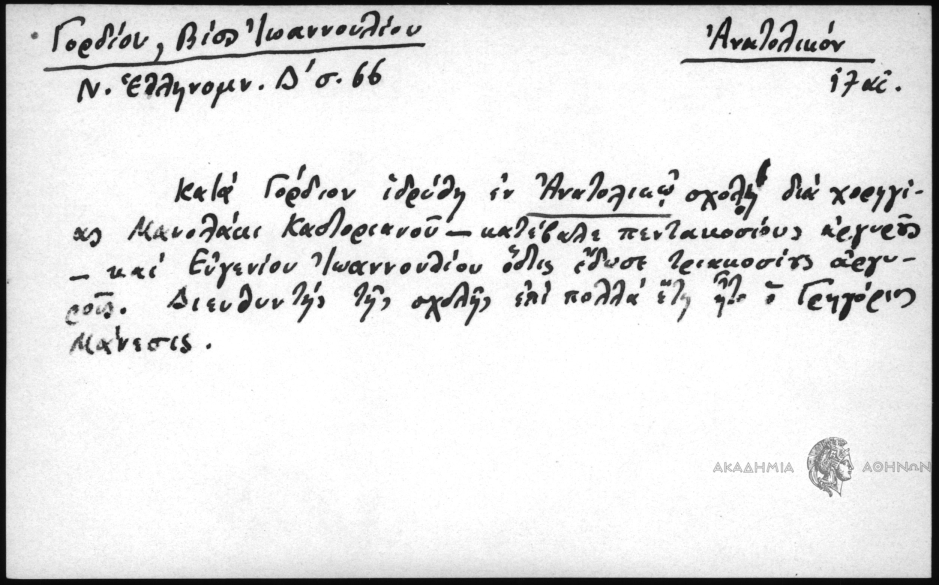 Γορδίου, Βίος Ἰωαννουλίου Ἀνατολικόν
Ν. Ἑλληνομν. Δ' σ. 66 17 αἰ.
Κατά Γόρδιον ἱδρύθη ἐν Ἀνατολικῷ σχολή διά χορηγί-
ας Μανολάκι Καστοριανοῦ – κατέβαλε πεντακοσίους ἀργυροῦς
– καί Εὐγενίου Ἰωαννουλίου ὅστις ἔδωσε τριακοσίους ἀργυ-
ροῦς. Διευθυντής τῆς σχολῆς ἐπί πολλά ἔτη ἦτο ὁ Γρηγόριος
Μάνεσις.
ΑΚΑΔΗΜΙΑ ΑΘΗΝΩΝ